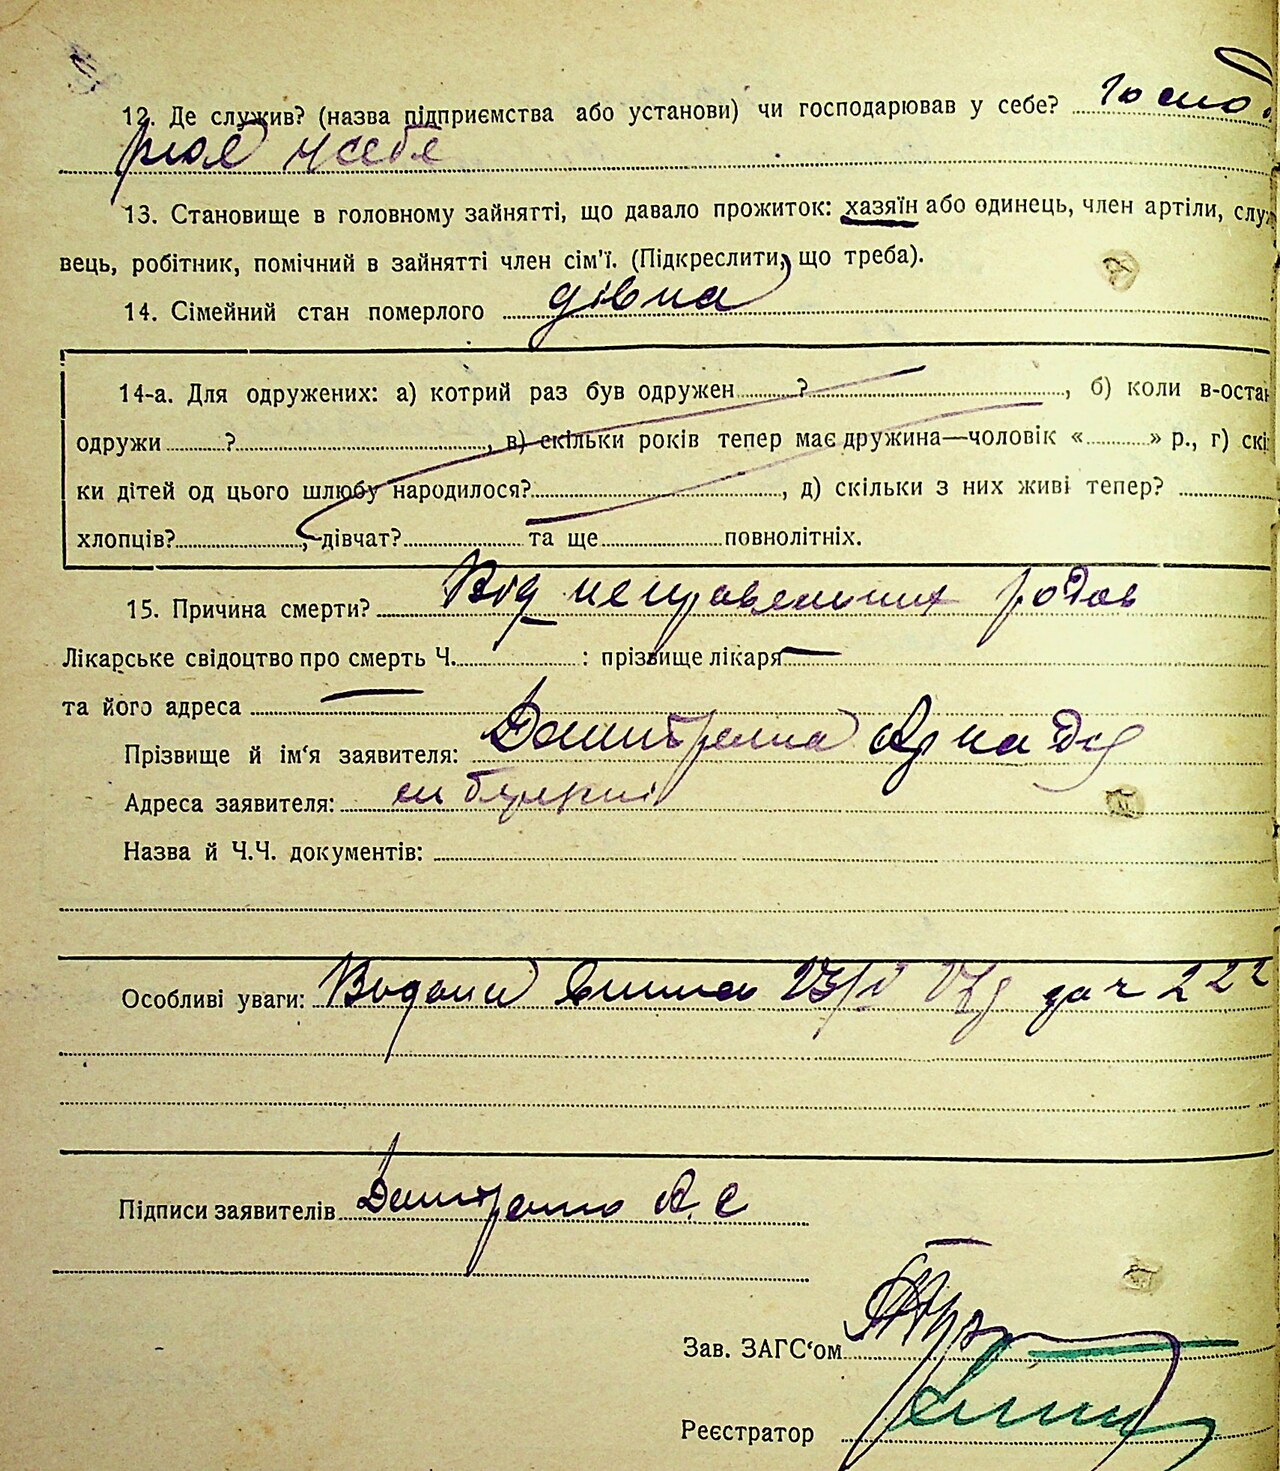 12. Де служив? (назва підприємства або установи) чи господарював у себе? господ
рює у себе
13. Становище в головному зайнятті, що давало прожиток: хазяїн або одинець, член артіли, служ
вець, робітник, помічний в зайнятті член сім'ї. (Підкреслити, що треба).
14. Сімейний стан померлого дівка
14-а. Для одружених: а) котрий раз був одружен ? , б) коли в-остан
одружи ? , в) скільки років тепер має дружина—чоловік « » р., г) скі
ки дітей од цього шлюбу народилося? , д) скільки з них живі тепер?
хлопців? , дівчат? та ще повнолітніх.
15. Причина смерти? Від неправельних родов
Лікарське свідоцтво про смерть Ч. : прізвище лікаря —
та його адреса —
Прізвище й ім'я заявителя: Дмитренко
Адреса заявителя:
Назва й Ч.Ч. документів:
Особливі уваги: 222
Підписи заявителів Дмитренко А. С
Зав. ЗАГС'ом
Реєстратор